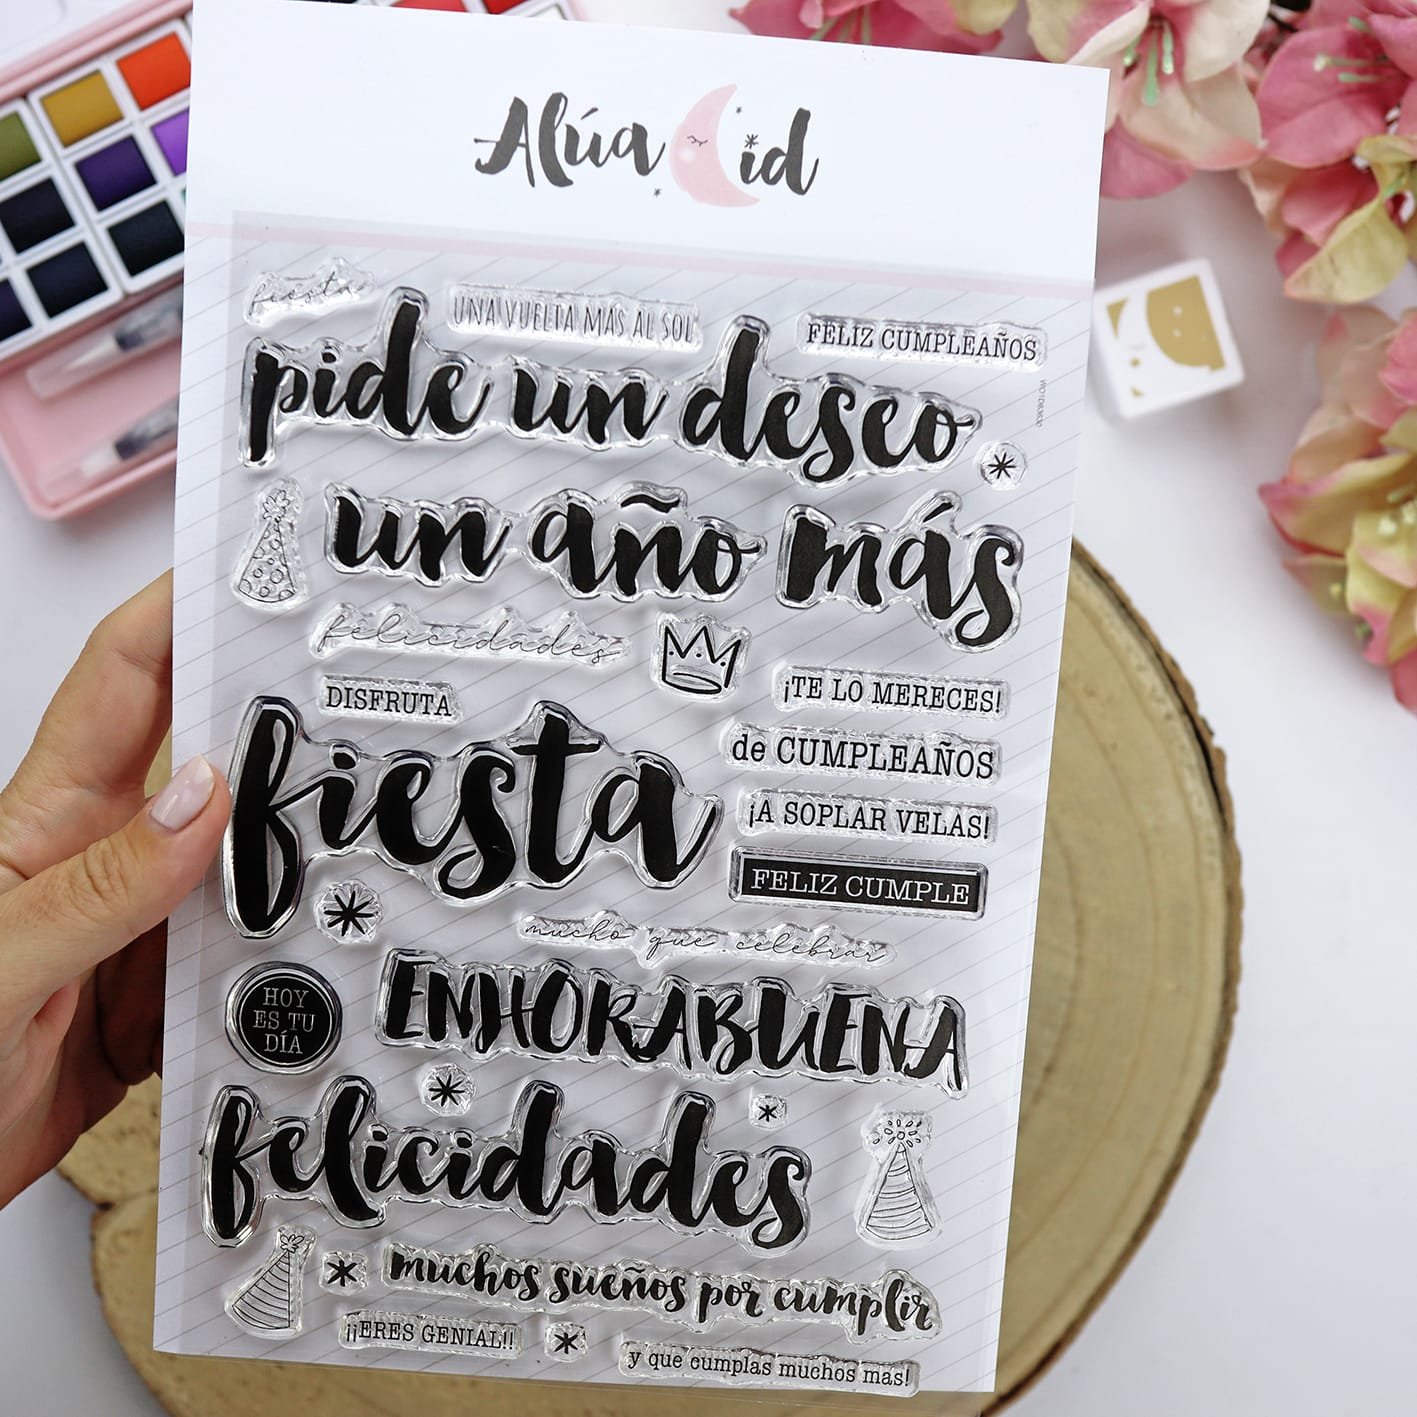 Alúa Cid
fiesta
UNA VUELTA MÁS AL SOL
FELIZ CUMPLEAÑOS
pide un deseo
un año más
felicidades
¡TE LO MERECES!
DISFRUTA
fiesta
de CUMPLEAÑOS
¡A SOPLAR VELAS!
FELIZ CUMPLE
mucho que celebrar
HOY
ES TU
DÍA
ENHORABUENA
felicidades
muchos sueños por cumplir
¡¡ERES GENIAL!!
y que cumplas muchos mas!